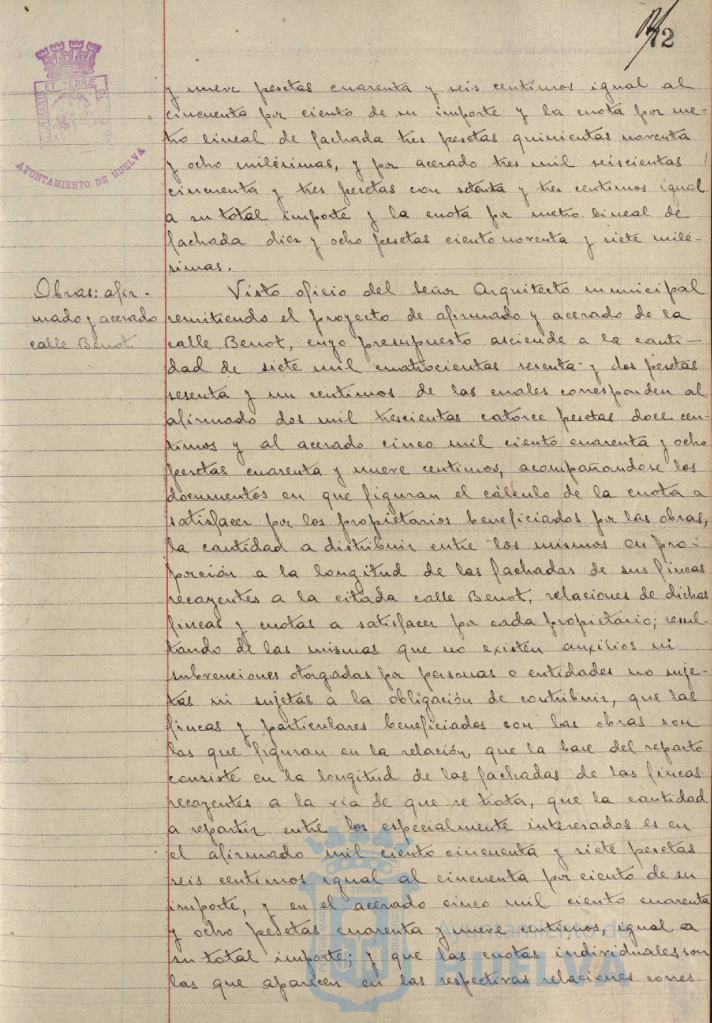 72
y nueve pesetas cuarenta y seis centimos igual al
cincuenta por ciento de su importe y la cuota por me-
tro lineal de fachada tres pesetas quinientas noventa
y ocho milésimas, y por acerado tres mil seiscientas
cincuenta y tres pesetas con setenta y tres centimos igual
a su total importe y la cuota por metro lineal de
fachada diez y ocho pesetas ciento noventa y siete milé-
simas.
AYUNTAMIENTO DE HUELVA
Obras: afir-
mado y acerado
calle Benot
Visto oficio del Señor Arquitecto municipal
remitiendo el proyecto de afirmado y acerado de la
calle Benot, cuyo presupuesto asciende a la canti-
dad de siete mil cuatrocientas sesenta y dos pesetas
sesenta y un centimos de las cuales corresponden al
afirmado dos mil trescientas catorce pesetas doce cen-
timos y al acerado cinco mil ciento cuarenta y ocho
pesetas cuarenta y nueve centimos, acompañandose los
documentos en que figuran el cálculo de la cuota a
satisfacer por los propietarios beneficiados por las obras,
la cantidad a distribuir entre los mismos en pro-
porción a la longitud de las fachadas de sus fincas
recayentes a la citada calle Benot, relaciones de dichas
fincas y cuotas a satisfacer por cada propietario; resul-
tando de las mismas que no existen auxilios ni
subvenciones otorgadas por personas o entidades no suje-
tas ni sujetas a la obligación de contribuir, que las
fincas y particulares beneficiados con las obras son
las que figuran en la relación, que la base del reparto
consiste en la longitud de las fachadas de las fincas
recayentes a la vía de que se trata, que la cantidad
a repartir entre los especialmente interesados es en
el afirmado mil ciento cincuenta y siete pesetas
seis centimos igual al cincuenta por ciento de su
importe, y en el acerado cinco mil ciento cuarenta
y ocho pesetas cuarenta y nueve centimos, igual a
su total importe; y que las cuotas individuales son
las que aparecen en las respectivas relaciones corres
Ayuntamiento de
HUELVA